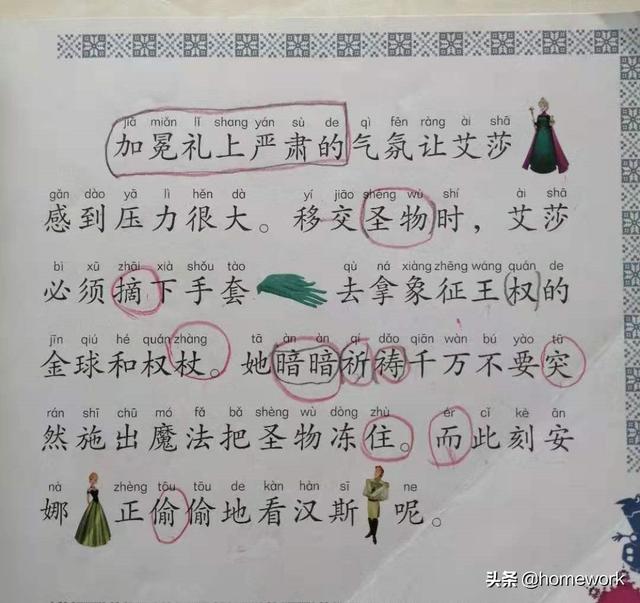 jiā miǎn lǐ shang yán sù de qì fēn ràng ài shā
加冕礼上严肃的气氛让艾莎
gǎn dào yā lì hěn dà yí jiāo shèng wù shí ài shā
感到压力很大。移交圣物时，艾莎
bì xū zhāi xià shǒu tào qù ná xiàng zhēng wáng quán de
必须摘下手套去拿象征王权的
jīn qiú hé quán zhàng tā àn àn qí dǎo qiān wàn bú yào tū
金球和权杖。她暗暗祈祷千万不要突
rán shī chū mó fǎ bǎ shèng wù dòng zhù ér cǐ kè ān
然施出魔法把圣物冻住。而此刻安
nà zhèng tōu tōu de kàn hàn sī ne
娜正偷偷地看汉斯呢。
头条 @homework